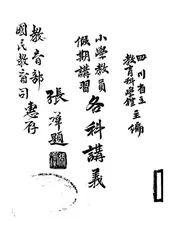 四川省立
教育科學館主編
小學教員
假期講習
各科講義
張群題
教育部
國民教育司惠存